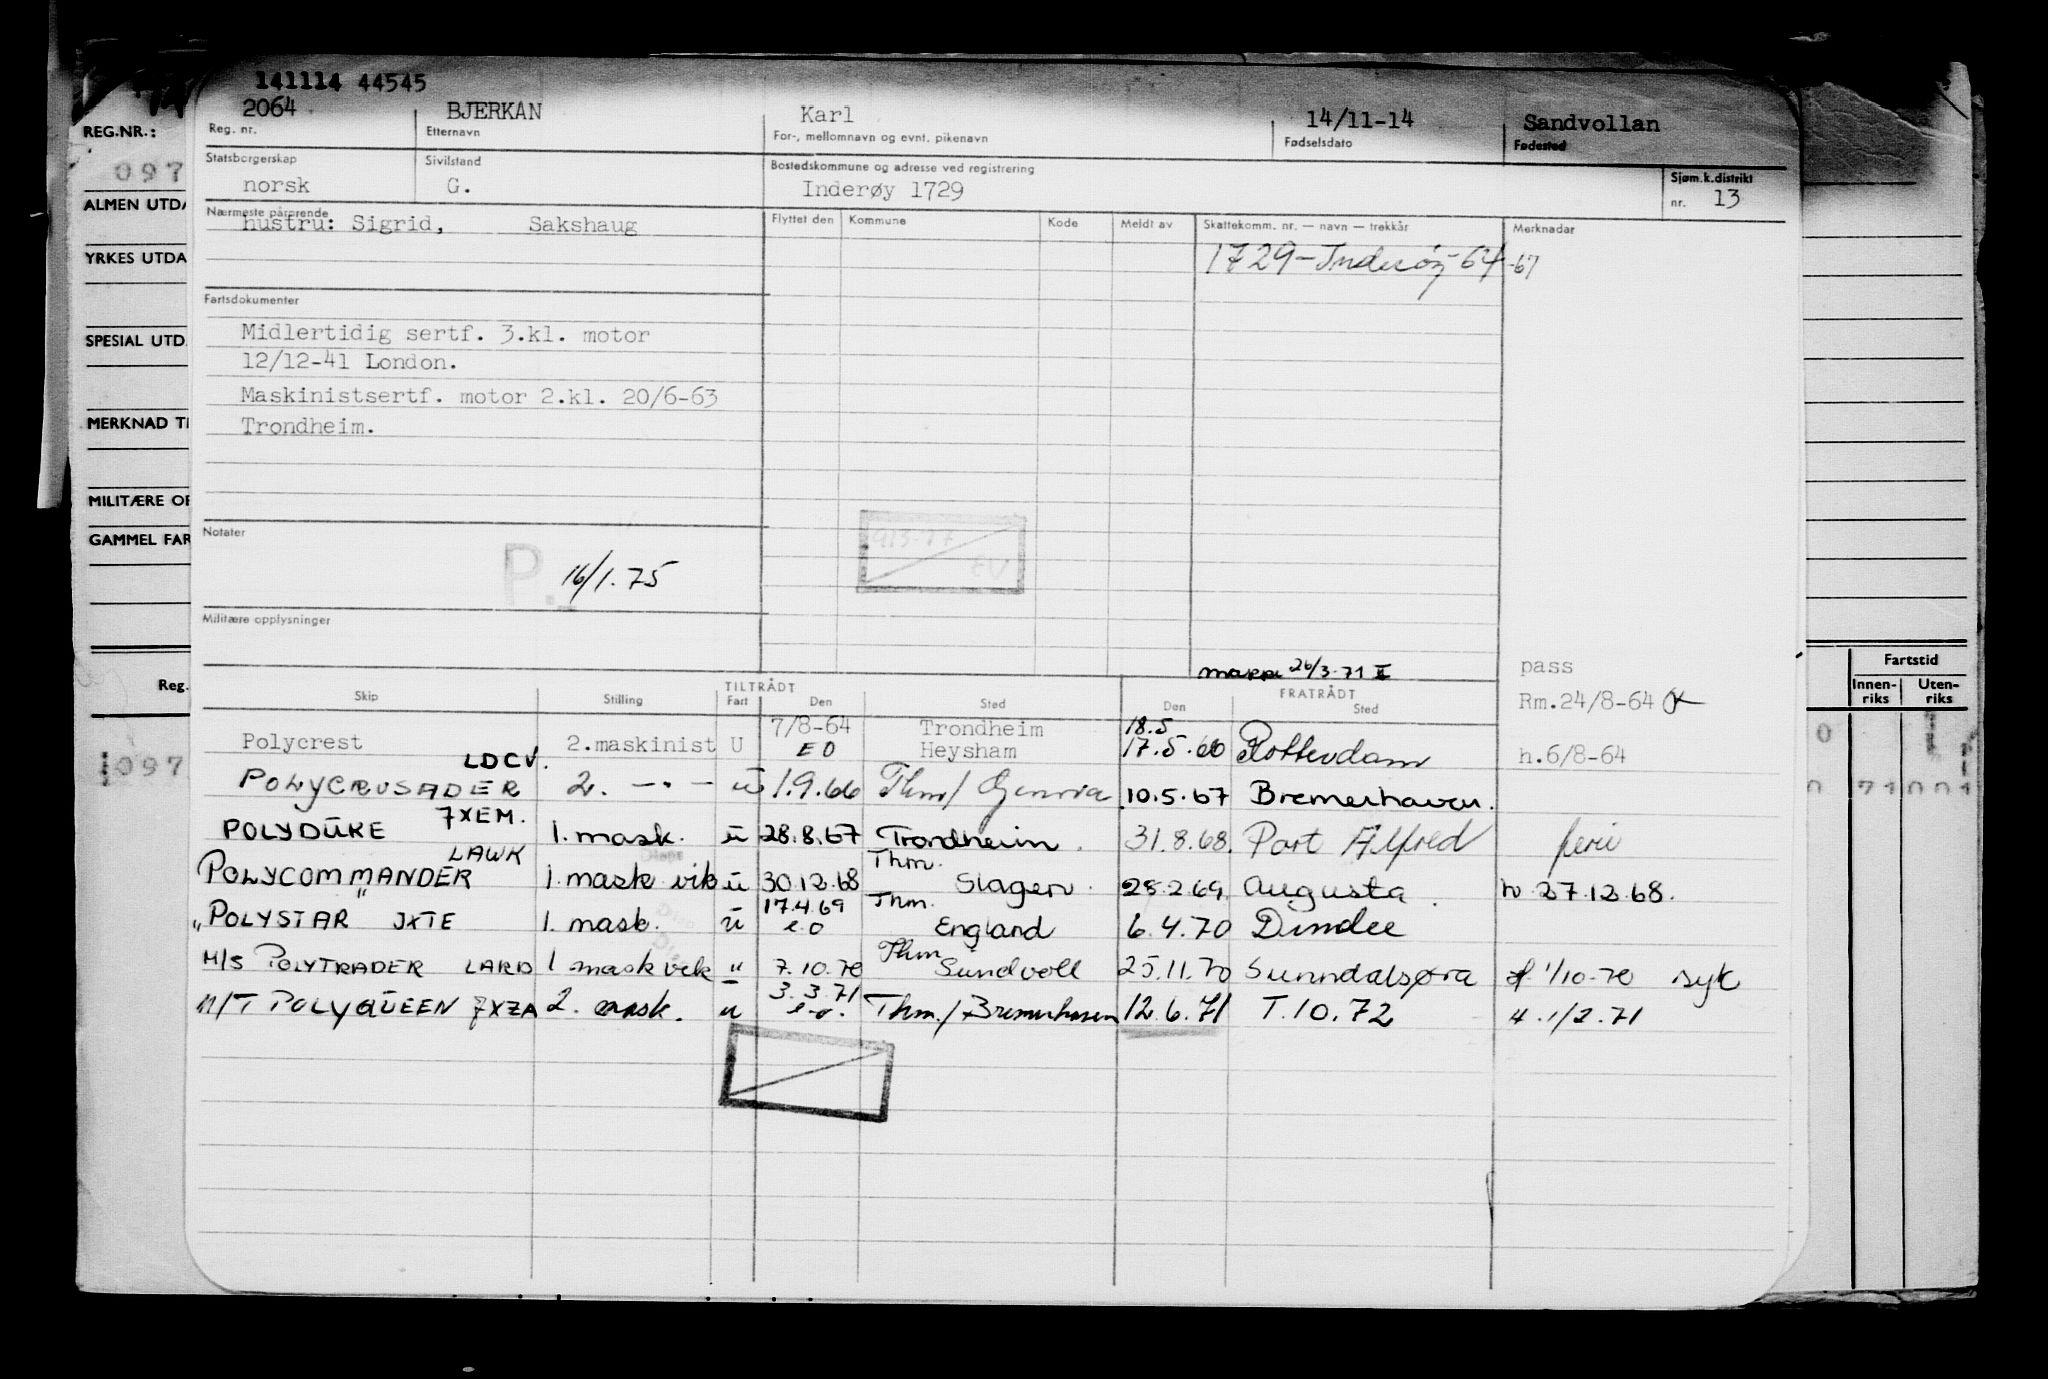 141114 44545
2064 BJERKAN Karl 14/11-14 Sandvollan
REG.NR.: Reg. nr. Etternavn For-, mellomnavn og evnt. pikenavn Fødselsdato Fødested
097 Statsborgerskap Sivilstand Bostedskommune og adresse ved registrering Sjøm.k.distrikt
norsk G. Inderøy 1729 nr. 13
ALMEN UTDA
Nærmeste pårørende Flyttet den Kommune Kode Meldt av Skattekomm. nr. — navn — trekkår Merknader
hustru: Sigrid, Sakshaug
YRKES UTDA 1729-Inderøy-64-67
Fartsdokumenter
SPESIAL UTD. Midlertidig sertf. 3.kl. motor
12/12-41 London.
Maskinistsertf. motor 2.kl. 20/6-63
MERKNAD TI Trondheim.
MILITÆRE OP
GAMMEL FAR Notater
P. 16/1.75
EV
Militære opplysninger
26/3-71 II pass
Reg. Skip Stilling TILTRÅDT FRATRÅDT Fartstid
Fart Den Sted Den Sted Rm.24/8-64 Innen-riks Uten-riks
7/8-64 Trondheim 18.5
Polycrest 2.maskinist U E O Heysham 17.5.66 Rotterdam h.6/8-64
LDCV.
1097 POLYCRUSADER 2. —"— u 1.9.66 Thm/ Genova 10.5.67 Bremerhaven.
7XEM.
POLYDUKE 1. mask. u 28.8.67 Trondheim. 31.8.68. Port Alfred ferie
LAWK Thm.
POLYCOMMANDER 1. mask vik u 30.12.68 Slagen. 25.2.69. Augusta. h 27.12.68.
17.4.69 Thm.
"POLYSTAR" JXTE 1. mask. u e.o England 6.4.70 Dundee
Thm
M/S POLYTRADER LARD 1 mask vik " 7.10.70 Sundvoll 25.11.70 Sunndalsøra 1/10-70 syk
3.3.71
M/T POLYQUEEN 7XZA 2. mask. u e.o. Thm./Bremerhaven 12.6.71 T.10.72 H.1/2.71